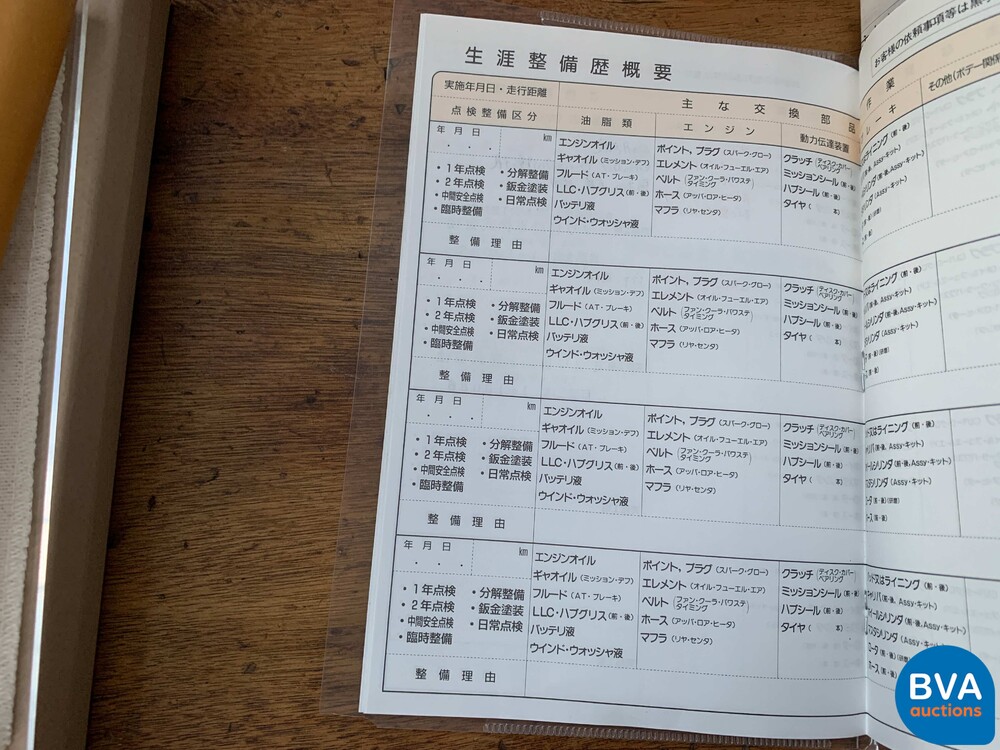 生涯整備歴概要
お客様の依頼事項等は黒
実施年月日・走行距離
主な交換部品
作業
点検整備区分
油脂類
エンジン
動力伝達装置
レーキ
その他(ボデー関係
年 月 日 km
・ ・ ・
・1年点検 ・分解整備
・2年点検 ・鈑金塗装
・中間安全点検 ・日常点検
・臨時整備
整備理由
エンジンオイル
ギャオイル(ミッション・デフ)
フルード(AT・ブレーキ)
LLC・ハブグリス(前・後)
バッテリ液
ウインド・ウオッシャ液
ポイント, プラグ(スパーク・グロー)
エレメント(オイル・フューエル・エア)
ベルト(ファン・クーラ・パワステ タイミング)
ホース(アッパ・ロア・ヒータ)
マフラ(リヤ・センタ)
クラッチ(ディスク・カバー ベアリング)
ミッションシール(前・後)
ハブシール(前・後)
タイヤ( 本)
ライニング(前・後)
年 月 日 km
・ ・ ・
・1年点検 ・分解整備
・2年点検 ・鈑金塗装
・中間安全点検 ・日常点検
・臨時整備
整備理由
エンジンオイル
ギャオイル(ミッション・デフ)
フルード(AT・ブレーキ)
LLC・ハブグリス(前・後)
バッテリ液
ウインド・ウオッシャ液
ポイント, プラグ(スパーク・グロー)
エレメント(オイル・フューエル・エア)
ベルト(ファン・クーラ・パワステ タイミング)
ホース(アッパ・ロア・ヒータ)
マフラ(リヤ・センタ)
クラッチ(ディスク・カバー ベアリング)
ミッションシール(前・後)
ハブシール(前・後)
タイヤ( 本)
はライニング(前・後)
年 月 日 km
・ ・ ・
・1年点検 ・分解整備
・2年点検 ・鈑金塗装
・中間安全点検 ・日常点検
・臨時整備
整備理由
エンジンオイル
ギャオイル(ミッション・デフ)
フルード(AT・ブレーキ)
LLC・ハブグリス(前・後)
バッテリ液
ウインド・ウオッシャ液
ポイント, プラグ(スパーク・グロー)
エレメント(オイル・フューエル・エア)
ベルト(ファン・クーラ・パワステ タイミング)
ホース(アッパ・ロア・ヒータ)
マフラ(リヤ・センタ)
クラッチ(ディスク・カバー ベアリング)
ミッションシール(前・後)
ハブシール(前・後)
タイヤ( 本)
はライニング(前・後)
リパ(前・後, Assy・キット)
ールシリンダ(前・後, Assy・キット)
スタシリンダ(Assy・キット)
ータ(前・後)(研磨)
ース(前・後)
年 月 日 km
・ ・ ・
・1年点検 ・分解整備
・2年点検 ・鈑金塗装
・中間安全点検 ・日常点検
・臨時整備
整備理由
エンジンオイル
ギャオイル(ミッション・デフ)
フルード(AT・ブレーキ)
LLC・ハブグリス(前・後)
バッテリ液
ウインド・ウオッシャ液
ポイント, プラグ(スパーク・グロー)
エレメント(オイル・フューエル・エア)
ベルト(ファン・クーラ・パワステ タイミング)
ホース(アッパ・ロア・ヒータ)
マフラ(リヤ・センタ)
クラッチ(ディスク・カバー ベアリング)
ミッションシール(前・後)
ハブシール(前・後)
タイヤ( 本)
ッド又はライニング(前・後)
キャリパ(前・後, Assy・キット)
イールシリンダ(前・後, Assy・キット)
マスタシリンダ(Assy・キット)
ロータ(前・後)(研磨)
ホース(前・後)
BVA
auctions